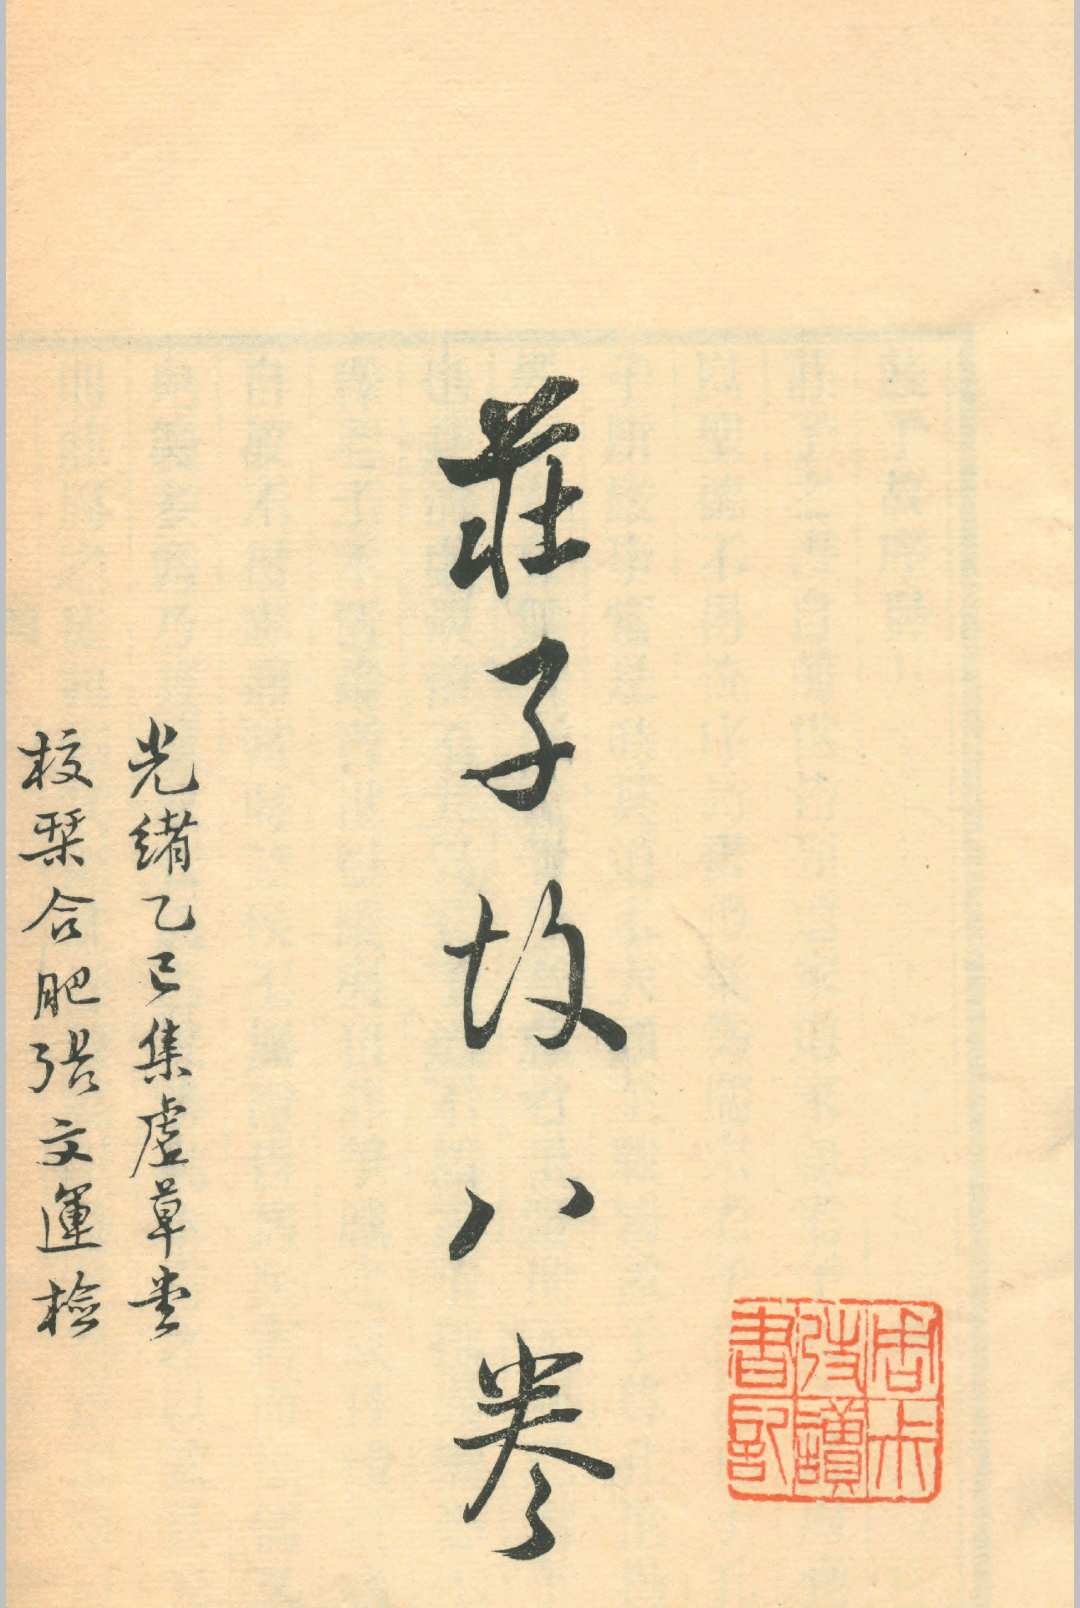 莊子故八卷
光緒乙巳集虛草堂
校栞合肥張文運檢
讀
書記